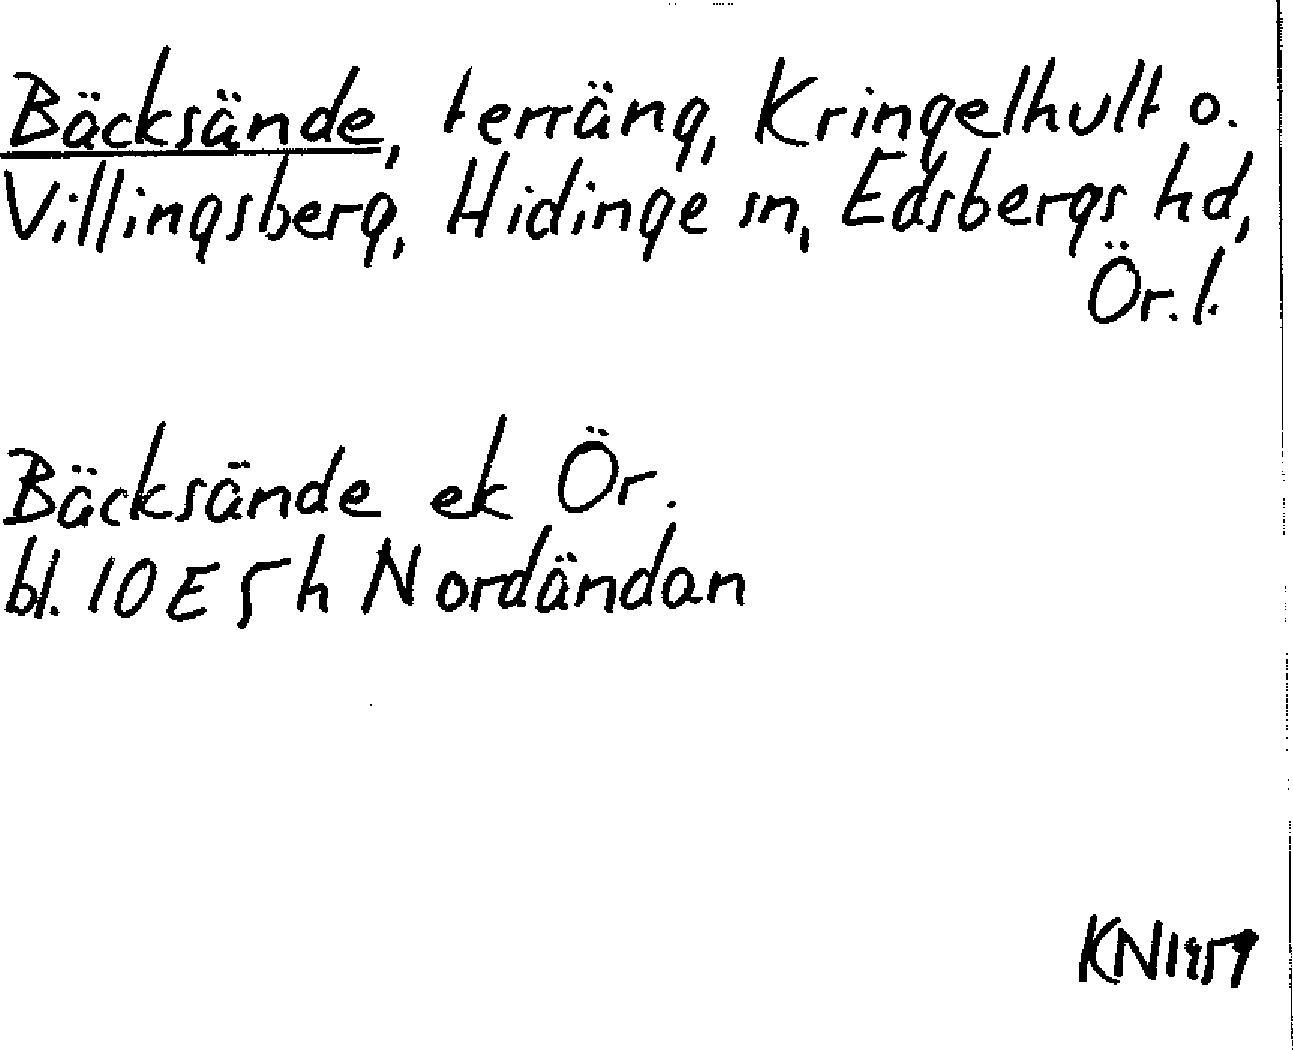 Bäcksände, terräng, Kringelhult o.
Villingsberg, Hidinge sn, Edsbergs hd,
Ör. l.
Bäcksände ek Ör.
bl. 10 E 5 h Nordändan
KN1959